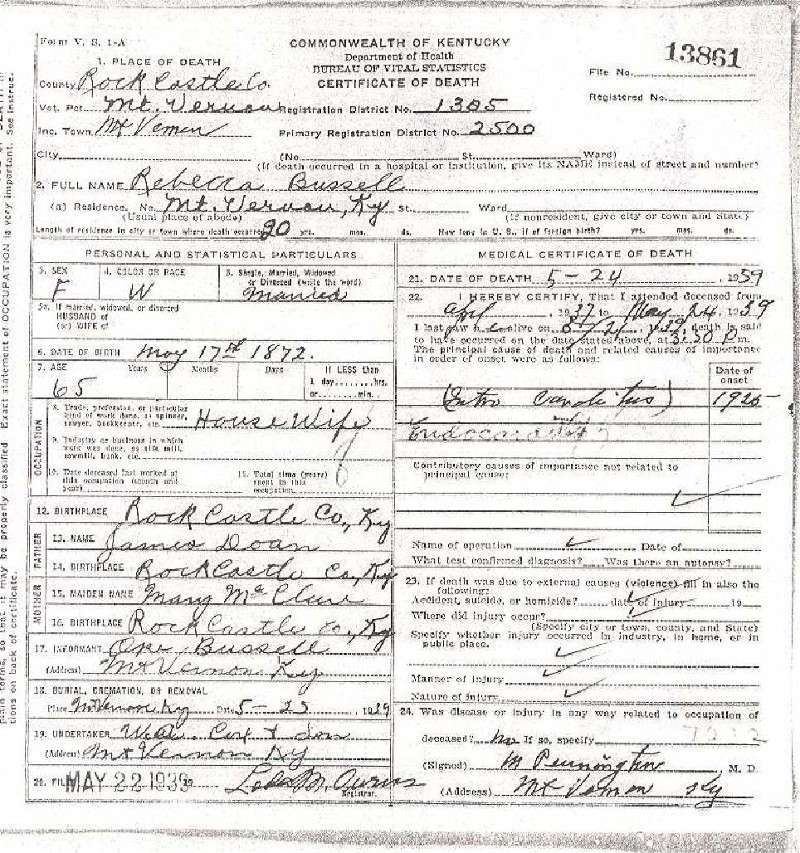 Form V. S. 1-A
COMMONWEALTH OF KENTUCKY
Department of Health
BUREAU OF VITAL STATISTICS
CERTIFICATE OF DEATH
File No. 13861
Registered No.
1. PLACE OF DEATH
County Rock Castle Co.
Vot. Pct. Mt. Vernon Registration District No. 1305
Inc. Town Mt Vernon Primary Registration District No. 2500
City (No. St. Ward)
(If death occurred in a hospital or institution, give its NAME instead of street and number)
2. FULL NAME Rebecca Bussell
(a) Residence. No. Mt. Vernon, Ky St. Ward
(Usual place of abode) (If nonresident, give city or town and State)
Length of residence in city or town where death occurred 20 yrs. mos. ds. How long in U. S., if of foreign birth? yrs. mos. ds.
PERSONAL AND STATISTICAL PARTICULARS
3. SEX F
4. COLOR OR RACE W
5. Single, Married, Widowed or Divorced (write the word) Married
5a. If married, widowed, or divorced
HUSBAND of
(or) WIFE of
6. DATE OF BIRTH May 17th 1872.
7. AGE Years Months Days If LESS than
65 1 day, hrs.
or min.
OCCUPATION
8. Trade, profession, or particular
kind of work done, as spinner,
sawyer, bookkeeper, etc. House Wife
9. Industry or business in which
work was done, as silk mill,
sawmill, bank, etc.
10. Date deceased last worked at
this occupation (month and
year)
11. Total time (years)
spent in this
occupation
12. BIRTHPLACE Rock Castle Co, Ky
FATHER
13. NAME James Doan
14. BIRTHPLACE Rock Castle Co, Ky
MOTHER
15. MAIDEN NAME Mary McClure
16. BIRTHPLACE Rock Castle Co, Ky
17. INFORMANT Bussell
(Address) Mt Vernon Ky
18. BURIAL, CREMATION, OR REMOVAL
Place Mt Vernon Ky Date 5-23 1939
19. UNDERTAKER Cox & Son
(Address) Mt Vernon Ky
20. FILED MAY 22 1939 Owens
Registrar.
MEDICAL CERTIFICATE OF DEATH
21. DATE OF DEATH 5-24, 1939
22. I HEREBY CERTIFY, That I attended deceased from
April 1937 to May 24 1939
I last saw h alive on 1939, death is said
to have occurred on the date stated above, at 3:30 P m.
The principal cause of death and related causes of importance
in order of onset were as follows:
Date of
onset
1925
Endocarditis
Contributory causes of importance not related to
principal cause:
Name of operation Date of
What test confirmed diagnosis? Was there an autopsy?
23. If death was due to external causes (violence) fill in also the
following:
Accident, suicide, or homicide? date of injury 19
Where did injury occur?
(Specify city or town, county, and State)
Specify whether injury occurred in industry, in home, or in
public place.
Manner of injury
Nature of injury
24. Was disease or injury in any way related to occupation of
deceased? no If so, specify
(Signed) M Pennington M. D.
(Address) Mt Vernon Ky